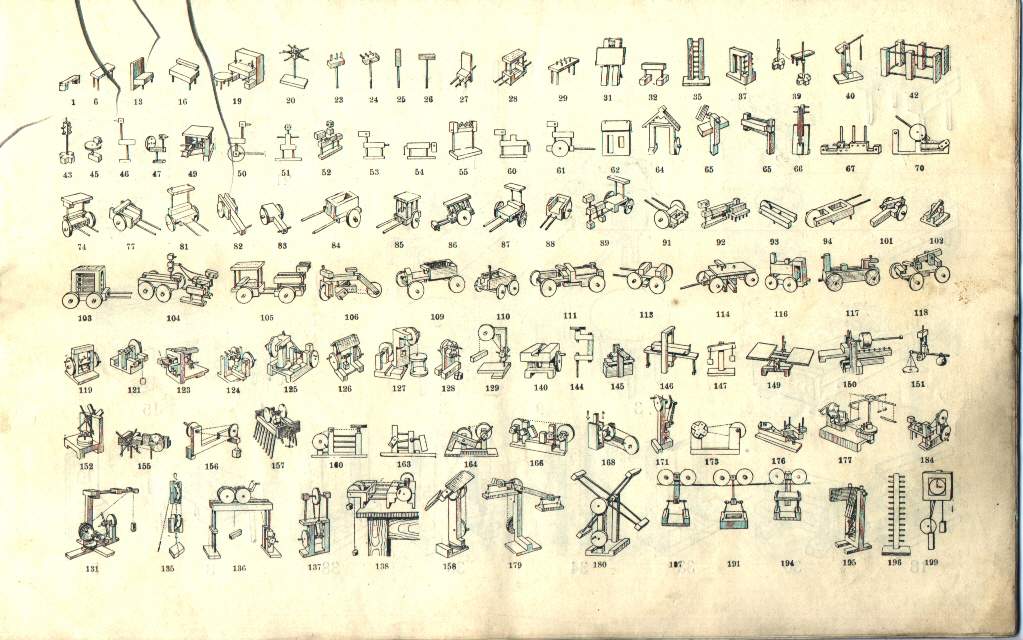 1 6 13 16 19 20 23 24 25 26 27 28 29 31 32 35 37 39 40 42
43 45 46 47 49 50 51 52 53 54 55 60 61 62 64 65 65 66 67 70
74 77 81 82 83 84 85 86 87 88 89 91 92 93 94 101 102
103 104 105 106 109 110 111 113 114 116 117 118
119 121 123 124 125 126 127 128 129 140 144 145 146 147 149 150 151
152 155 156 157 160 163 164 166 168 171 173 176 177 184
131 135 136 137 138 158 179 180 191 194 195 196 199